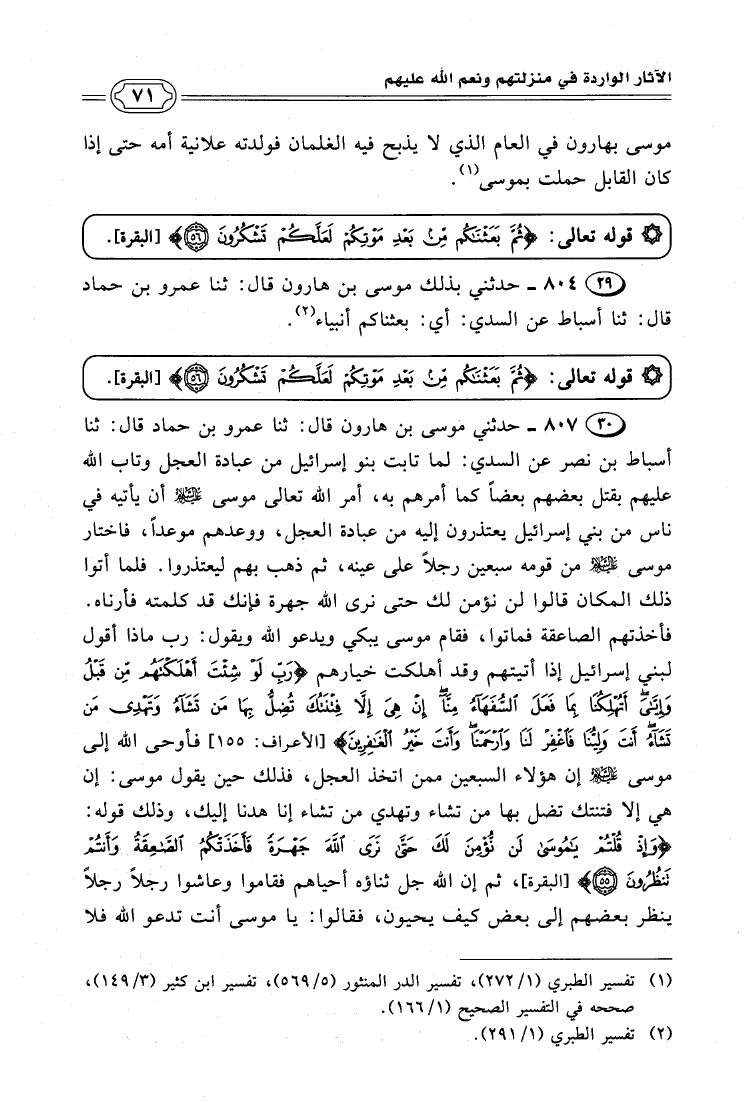 الآثار الواردة في منزلتهم ونعم الله عليهم
٧١
موسى بهارون في العام الذي لا يذبح فيه الغلمان فولدته علانية أمه حتى إذا
كان القابل حملت بموسى(١).
۞ قوله تعالى: ﴿ثُمَّ بَعَثْنَٰكُم مِّنۢ بَعْدِ مَوْتِكُمْ لَعَلَّكُمْ تَشْكُرُونَ ٥٦﴾ [البقرة].
٢٩ ٨٠٤ ـ حدثني بذلك موسى بن هارون قال: ثنا عمرو بن حماد
قال: ثنا أسباط عن السدي: أي: بعثناكم أنبياء(٢).
۞ قوله تعالى: ﴿ثُمَّ بَعَثْنَٰكُم مِّنۢ بَعْدِ مَوْتِكُمْ لَعَلَّكُمْ تَشْكُرُونَ ٥٦﴾ [البقرة].
٣٠ ٨٠٧ ـ حدثني موسى بن هارون قال: ثنا عمرو بن حماد قال: ثنا
أسباط بن نصر عن السدي: لما تابت بنو إسرائيل من عبادة العجل وتاب الله
عليهم بقتل بعضهم بعضاً كما أمرهم به، أمر الله تعالى موسى عليه السلام أن يأتيه في
ناس من بني إسرائيل يعتذرون إليه من عبادة العجل، ووعدهم موعداً، فاختار
موسى عليه السلام من قومه سبعين رجلاً على عينه، ثم ذهب بهم ليعتذروا. فلما أتوا
ذلك المكان قالوا لن نؤمن لك حتى نرى الله جهرة فإنك قد كلمته فأرناه.
فأخذتهم الصاعقة فماتوا، فقام موسى يبكي ويدعو الله ويقول: رب ماذا أقول
لبني إسرائيل إذا أتيتهم وقد أهلكت خيارهم ﴿رَبِّ لَوْ شِئْتَ أَهْلَكْتَهُم مِّن قَبْلُ
وَإِيَّٰىَۖ أَتُهْلِكُنَا بِمَا فَعَلَ ٱلسُّفَهَآءُ مِنَّآۖ إِنْ هِىَ إِلَّا فِتْنَتُكَ تُضِلُّ بِهَا مَن تَشَآءُ وَتَهْدِى مَن
تَشَآءُۖ أَنتَ وَلِيُّنَا فَٱغْفِرْ لَنَا وَٱرْحَمْنَاۖ وَأَنتَ خَيْرُ ٱلْغَٰفِرِينَ﴾ [الأعراف: ١٥٥] فأوحى الله إلى
موسى عليه السلام إن هؤلاء السبعين ممن اتخذ العجل، فذلك حين يقول موسى: إن
هي إلا فتنتك تضل بها من تشاء وتهدي من تشاء إنا هدنا إليك، وذلك قوله:
﴿وَإِذْ قُلْتُمْ يَٰمُوسَىٰ لَن نُّؤْمِنَ لَكَ حَتَّىٰ نَرَى ٱللَّهَ جَهْرَةً فَأَخَذَتْكُمُ ٱلصَّٰعِقَةُ وَأَنتُمْ
تَنظُرُونَ ٥٥﴾ [البقرة]، ثم إن الله جل ثناؤه أحياهم فقاموا وعاشوا رجلاً رجلاً
ينظر بعضهم إلى بعض كيف يحيون، فقالوا: يا موسى أنت تدعو الله فلا
(١) تفسير الطبري (٢٧٢/١)، تفسير الدر المنثور (٥٦٩/٥)، تفسير ابن كثير (١٤٩/٣)،
صححه في التفسير الصحيح (١٦٦/١).
(٢) تفسير الطبري (٢٩١/١).